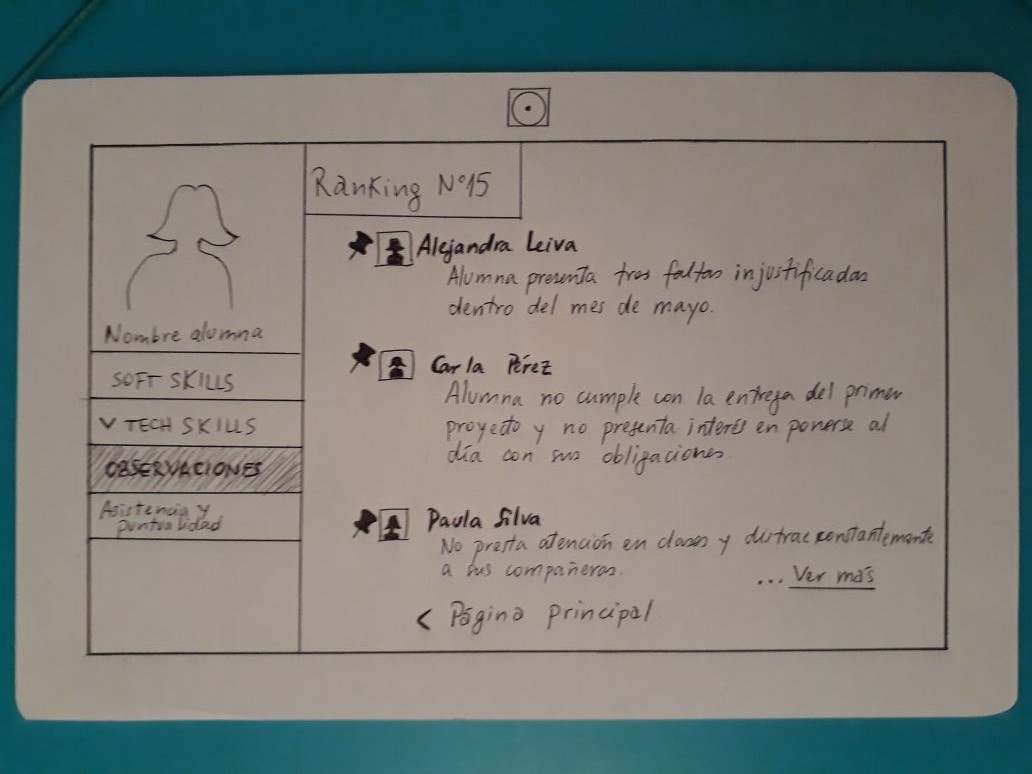 Nombre alumna
SOFT SKILLS
V TECH SKILLS
OBSERVACIONES
Asistencia y
puntualidad
Ranking N°15
Alejandra Leiva
Alumna presenta tres faltas injustificadas
dentro del mes de mayo.
Carla Pérez
Alumna no cumple con la entrega del primer
proyecto y no presenta interés en ponerse al
día con sus obligaciones.
Paula Silva
No presta atención en clases y distrae constantemente
a sus compañeras.
... Ver más
< Página principal